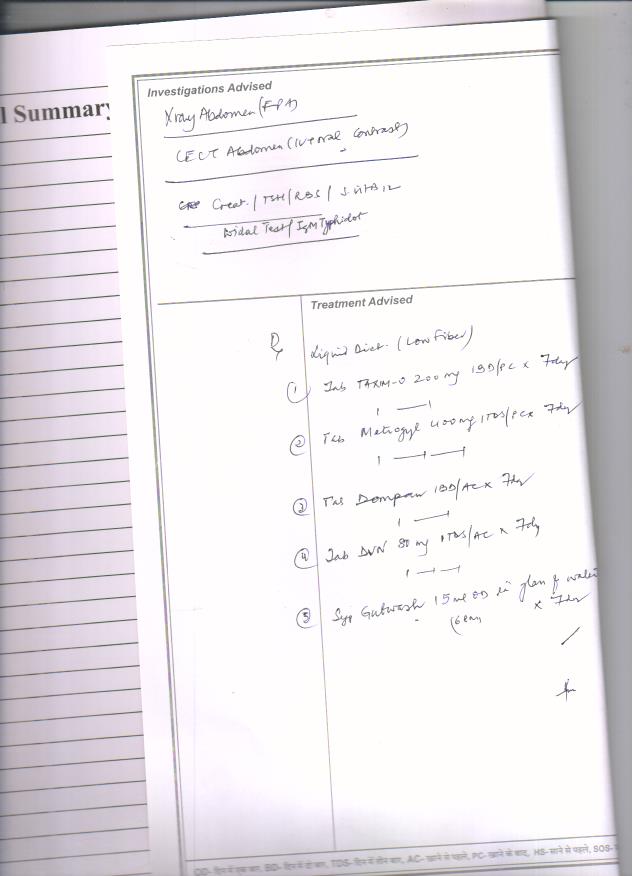 l Summary
Investigations Advised
Xray Abdomen (FPA)
CECT Abdomen (IV+oral contrast)
Creat. / TSH / RBS / S. Vit B12
Widal Test / IgM Typhidot
Treatment Advised
Liquid Diet. (Low Fiber)
① Tab TAXIM-O 200 mg 1BD/PC x 7day
② Tab Metrogyl 400 mg 1TDS/PC x 7day
③ Tab 1BD/AC x 7day
④ Tab 80 mg 1TDS/AC x 7day
⑤ Syp Gutwash 15 ml OD in glass of water
x 7day
OD- दिन में एक बार, BD- दिन में दो बार, TDS- दिन में तीन बार, AC- खाने से पहले, PC- खाने के बाद, HS- सोने से पहले, SOS-